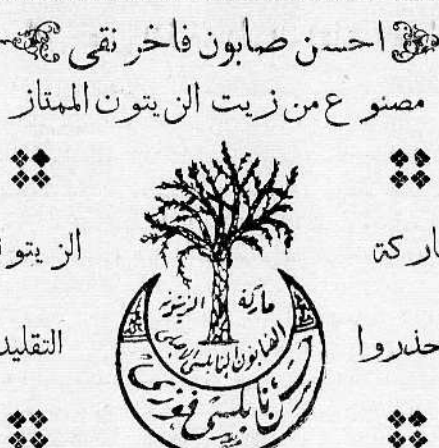 احسن صابون فاخر نقي
مصنوع من زيت الزيتون الممتاز
ماركة الزيتون
احذروا التقليد
ماركة الزيتون
الصابون النابلسي الاصلي
نابلسي فخوري